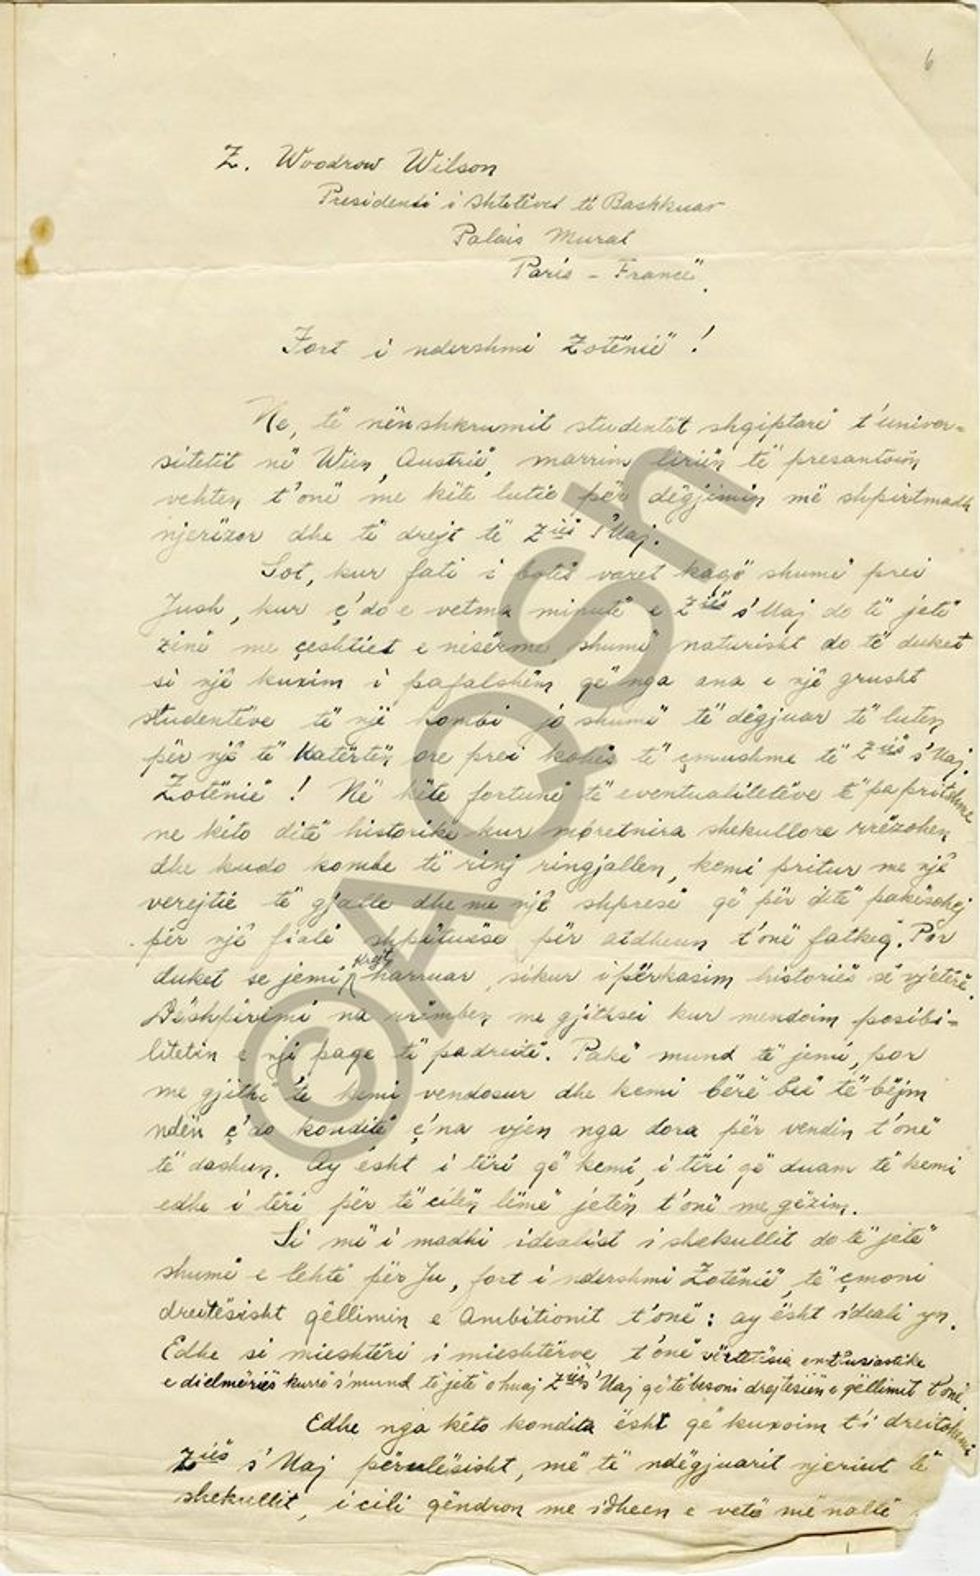 6
Z. Woodrow Wilson
Presidenti i Shtetëvet të Bashkuar
Palais Murat
Paris – Francë.
Fort i ndershmi Zotënië !
Ne, të nënshkrumit studentët shqiptarë t'univer=
sitetit në Wien, Austrië, marrim lirin të presantoin
vehten t'onë me këte lutië për dëgjimin më shpirtmadh
njerëzor dhe të drejt të Ziës s'Uaj.
Sot, kur fati i botës varet kaqë shumë prei
Jush, kur ç'do e vetma minutë e Ziës s'Uaj do të jetë
zënë me çeshtiet e nësërme, shumë naturisht do të duket
si një kuxim i pafalshëm që nga ana e një grusht
studentëve të një kombi jo shumë të dëgjuar të luten
për një të katërtën ore prei kohës të çmushme të Ziës s'Uaj.
Zotënië ! Në këte fortunë të eventualitetëve të papritshme
ne këto ditë historike kur mbretnira shekullore rrëzohen
dhe kudo kombe të rinj ringjallen, kemi pritur me një
verejtië të gjallë dhe me një shpresë që për ditë pakësohej
për një fjalë shpëtuese për atdheun t'onë fatkeq. Por
duket se jemi krejt harruar, sikur i përkasim historiës së vjetërë.
Dëshpërimi na urëmben me gjithsei kur mendoim posibi=
litetin e një page të padreitë. Pakë mund të jemi, por
me gjithë të kemi vendosur dhe kemi bërë beë të bëjm
ndën ç'do konditë ç'na vjen nga dora për vendin t'onë
të dashun. Ay ësht i tëri që kemi, i tëri që duam të kemi
edhe i tëri për të cilën lëmë jetën t'onë me gëzim.
Si më i madhi idealist i shekullit do të jetë
shumë e lehtë për Ju, fort i ndershmi Zotënië, të çmoni
dreitësisht qëllimin e Ambitionit t'onë: ay ësht ideali yn.
Edhe si mieshtëri i mieshtërve t'onë vërtetësia enthusiastike
e dielmëriës kurrë s'mund të jetë e huaj Ziës s'Uaj që të besoni drejtësiën e qëllimit t'onë.
Edhe nga këto kondita ësht që kuxoim t'i dreitohemi
Ziës s'Uaj përulësisht, më të ndëgjuarit njeriut të
shekullit, i cili qëndron me idheen e vetë më naltë
©AQSH